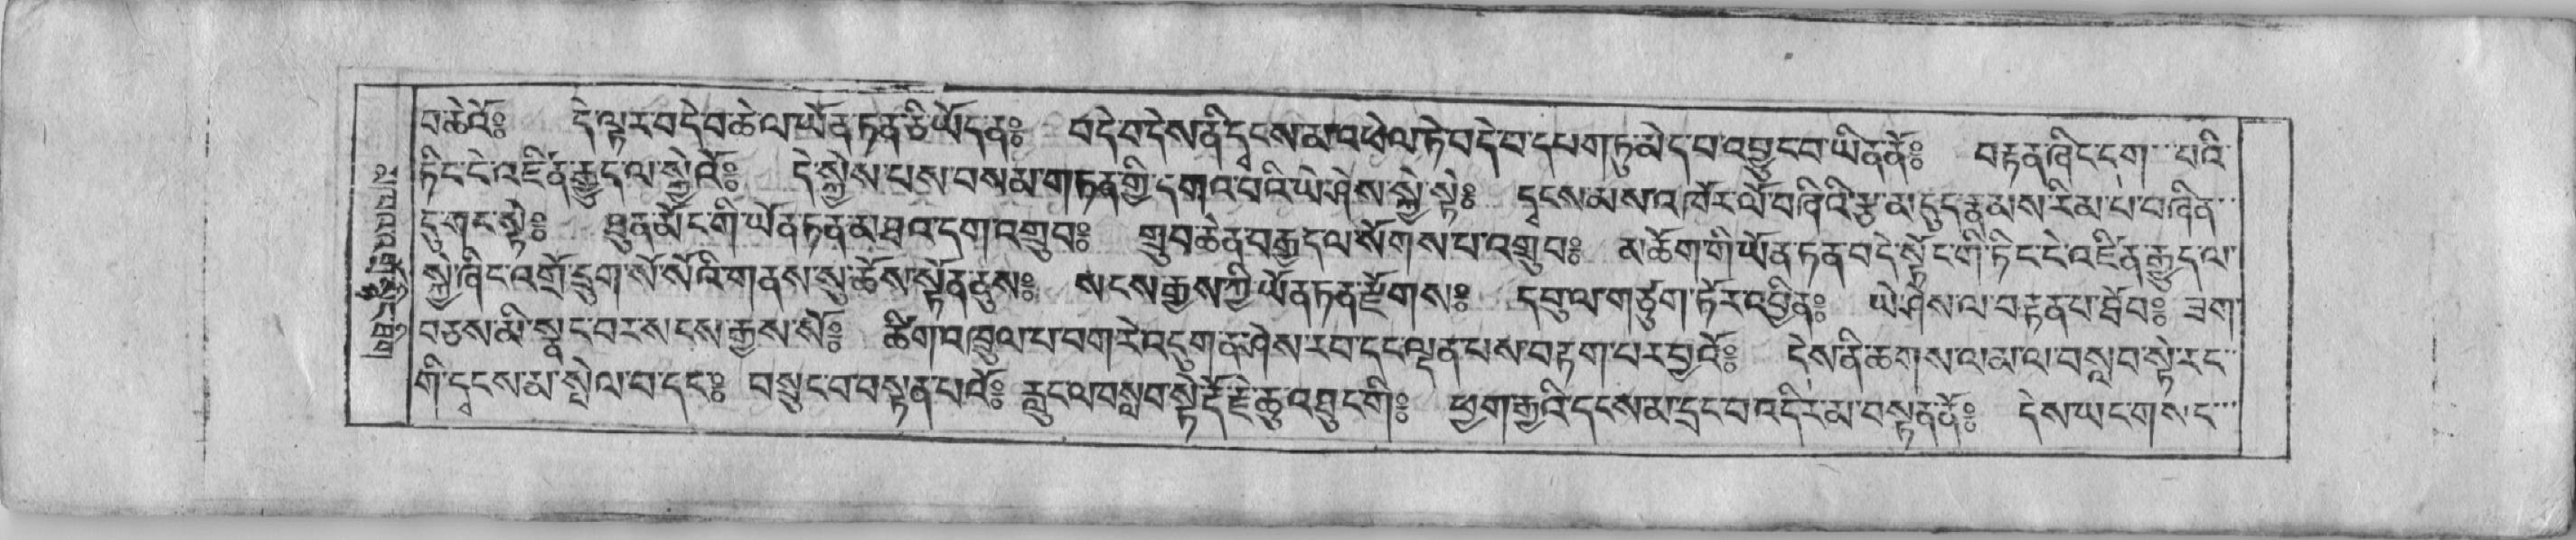 བ་ཆེའོ༔ དེ་ལྟར་བདེ་བ་ཆེ་ལ་ཡོན་ཏན་ཅི་ཡོད་ན༔ བདེ་བ་དེས་ནི་དྭངས་མ་འཕེལ་ཏེ་བདེ་བ་དཔག་ཏུ་མེད་པ་འབྱུང་བ་ཡིན་ནོ༔ བརྟན་ཞིང་དག་པའི་
ཏིང་ངེ་འཛིན་རྒྱུད་ལ་སྐྱེའོ༔ དེ་སྐྱེས་པས་བསམ་གཏན་གྱི་དགའ་བའི་ཡེ་ཤེས་སྐྱེ་སྟེ༔ དྭངས་མས་འཁོར་ལོ་བཞིའི་རྩ་མདུད་རྣམས་རིམ་པ་བཞིན་
དུ་གང་སྟེ༔ ཐུན་མོང་གི་ཡོན་ཏན་མཐའ་དག་འགྲུབ༔ གྲུབ་ཆེན་བརྒྱད་ལ་སོགས་པ་འགྲུབ༔ མཆོག་གི་ཡོན་ཏན་བདེ་སྟོང་གི་ཏིང་ངེ་འཛིན་རྒྱུད་ལ་
སྐྱེ་ཞིང་འགྲོ་དྲུག་སོ་སོའི་གནས་སུ་ཆོས་སྟོན་ནུས༔ སངས་རྒྱས་ཀྱི་ཡོན་ཏན་རྫོགས༔ དབུལ་གཙུག་ཏོར་འབྱིན༔ ཡེ་ཤེས་ལ་བརྟན་པ་ཐོབ༔ ཟག་
བཅས་མི་སྣང་བར་སངས་རྒྱས་སོ༔ ཚིག་འཁྲུལ་པ་བག་རེ་འདུག་ན་ཤེས་རབ་དང་ལྡན་པས་བརྟག་པར་བྱའོ༔ དེས་ནི་ཆགས་ལམ་ལ་བསླབ་སྟེ་རང་
གི་དྭངས་མ་སྤེལ་བ་དང༔ བསྲུང་བ་བསྟན་པའོ༔ རླུང་ལ་བསླབ་སྟེ་རྡོ་རྗེ་ཆུ་འཐུང་གི༔ ཕྱག་རྒྱའི་དྭངས་མ་དྲང་བ་འདིར་མ་བསྟན་ནོ༔ དེས་ཡང་གསང་